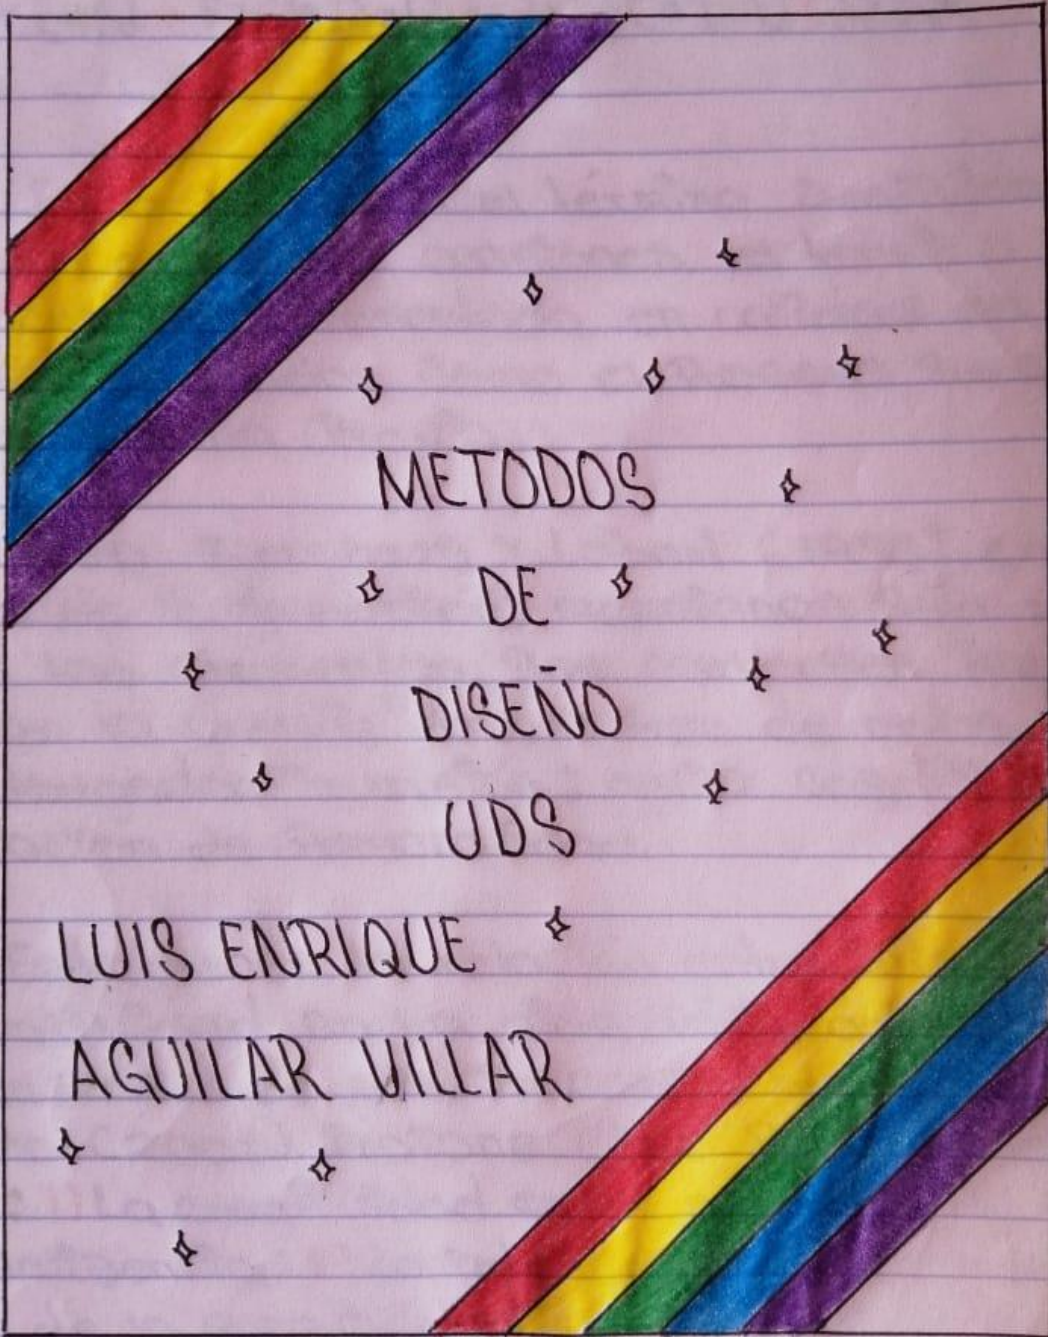 METODOS
DE
DISEÑO
UDS
LUIS ENRIQUE
AGUILAR VILLAR